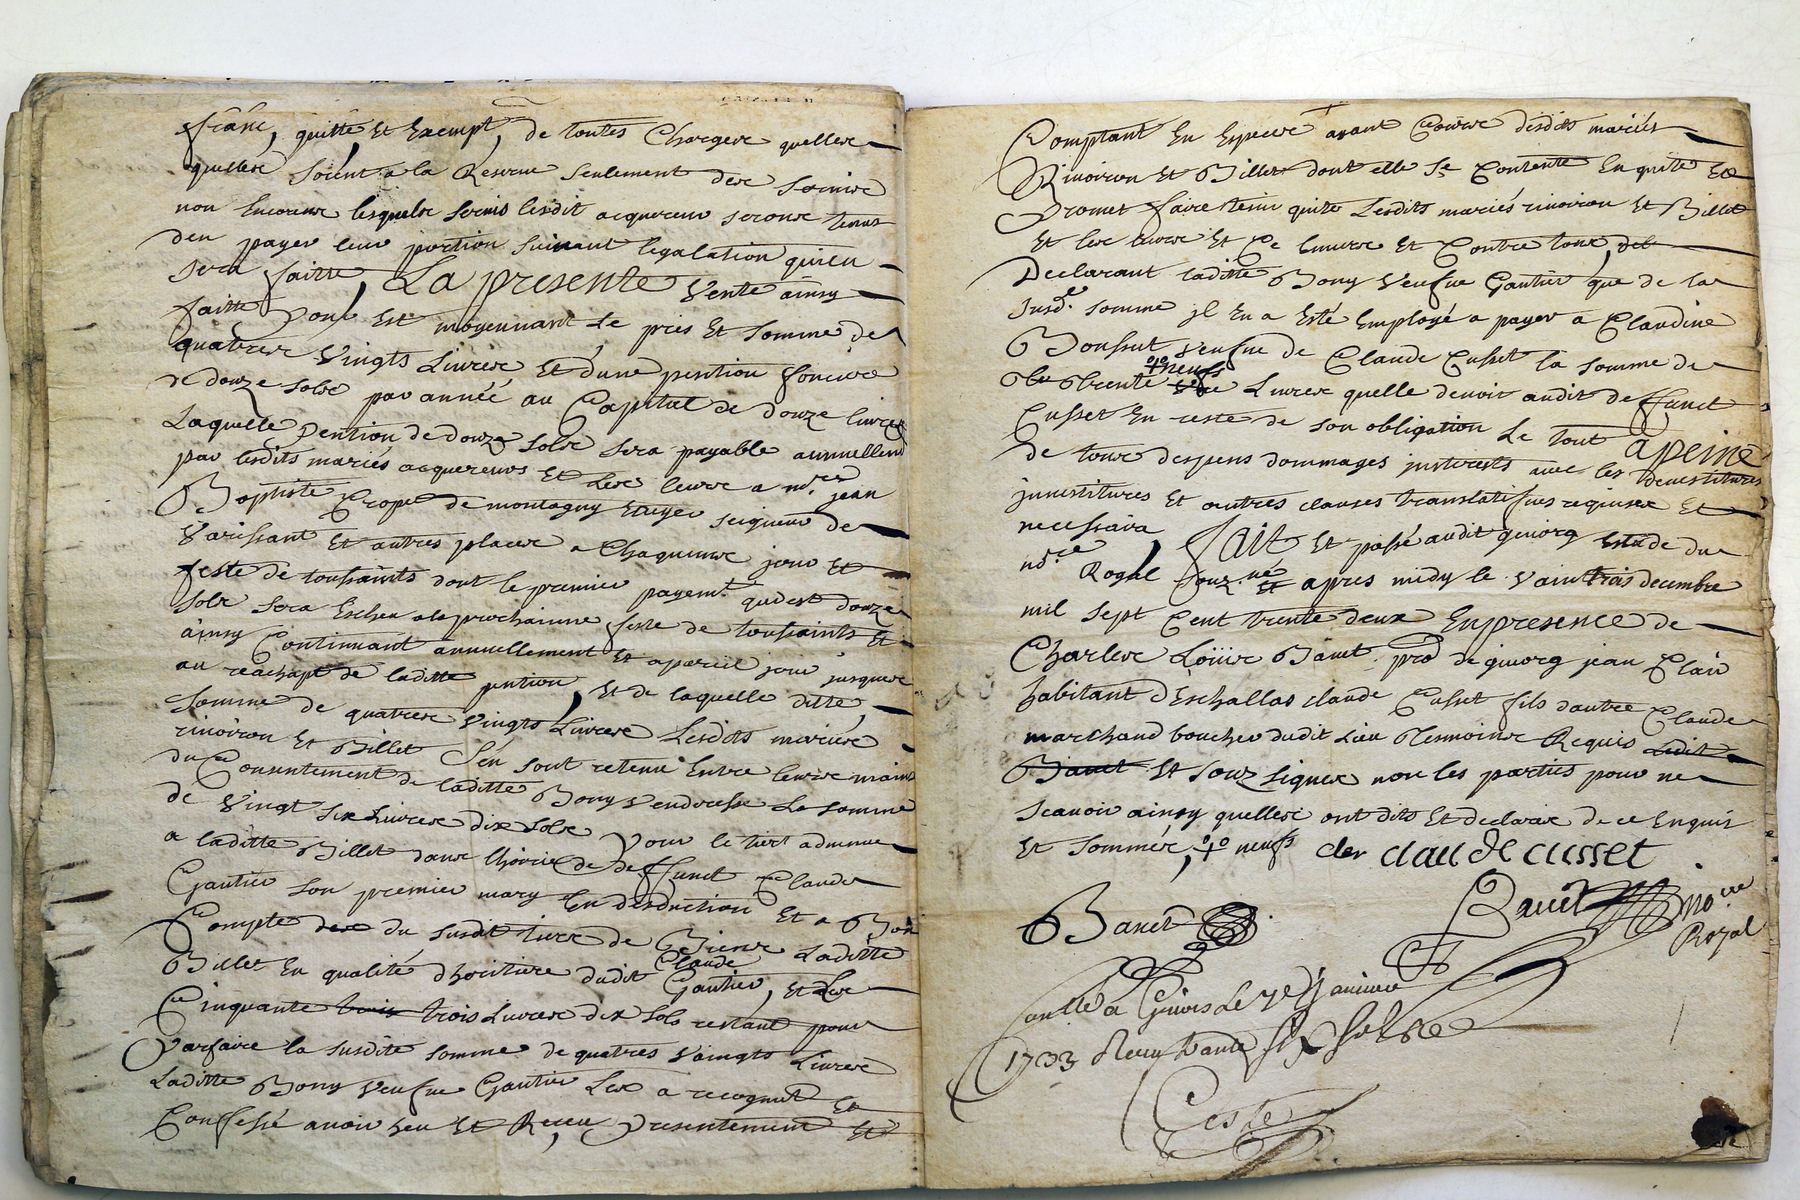 franc, quitte Et Exempt, de toutes Charges quelles
quelles soient a la Reserve seulement des servis
non Encourus lesquels servis lesdit acquereur seront tenus
den payer leur portion suivant legalation quien
sera faitte, La presente Vente ainsy
faitte pour Est moyennant le pris Et somme de
quatres Vingts Livres Et d'une pention fonciere
de douze sols par année au Capital de douze livres
Laquelle pention de douze sols sera payable annuellemt
par lesdits mariés acquereurs Et Les leurs a mre jean
Baptiste de montagny Ecuyer seigneur de
Et autres places a Chaquunes jour Et
feste de toussaints dont le premier payemt quiest douze
sols sera Escheu ala prochainne feste de toussaints Et
ainsy Continuant annuellement Et apareil jour jusques
au reachapt de laditte pention, Et de laquelle ditte
somme de quatres vingts Livres Lesdits mariés
rivoiron Et Billet S'en sont retenu Entre leurs mains
du Consentement de laditte Bony venderesse La somme
de Vingt six Livres dix sols pour le tiert advenue
a laditte Billet dans lhoirie de deffunct Claude
Gautier son premier mary En desduction Et a Bon
Compte des du susdit tiers de Biens Laditte
Billet En qualité dhoritiere dudit Claude Gautier, Et Les
Cinquante trois trois Livres dix sols restant pour
parfaire la susdite somme de quatres Vaingts Livres
Laditte Bony veufve Gautier Les a recognut Et
Confessé avoir heu Et Receu, presentement Et
Comptant En Especes ayant Cours desdits mariés
Rivoiron Et Billet dont elle se Contente En quite Et
Promet faire tenir quite Lesdits mariés rivoiron Et Billet
Et les leurs Et Ce Envers Et Contre tous,
Declarant laditte Bony Veufve Gautier que de la
susde somme jl En a Esté Employé a payer a Claudine
Bonsut veufve de Claude Cusset la somme de
trente neufs Livres quelle devoit audit deffunct
Cusset En reste de son obligation Le tout a peine
de tous despens dommages jnterests avec les devestitures
jnvestitures Et autres clauses translatifves requises Et
necessaires, Fait Et passé audit givorg Estude du
nore Royal souz.né Et apres midy le vaintrois decembre
mil sept Cent trente deux En presence de
Charles Loüis Banet de givorg jean
habitant d'Eschallas claude Cusset fils dautre Claude
marchand boucher dudit Lieu tesmoins Requis Ledit
Banet Et souz signes non les parties pour ne
scavoir ainsy quelles ont dits Et declarés de ce Enquis
Et sommés, neufs claude cusset
Banet Bauet nore
Royal
a Givors Le 7e janvier
1733 Receu